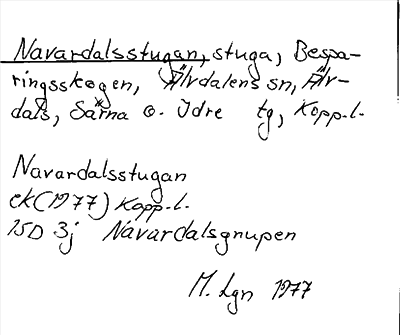 Navardalsstugan, stuga, Bespa-
ringsskogen, Älvdalens sn, Älv-
dals, Särna o. Idre tg, Kopp.l.
Navardalsstugan
ek (1977) Kopp.l.
15D 3j Návardalsgnupen
M. Lgn 1977